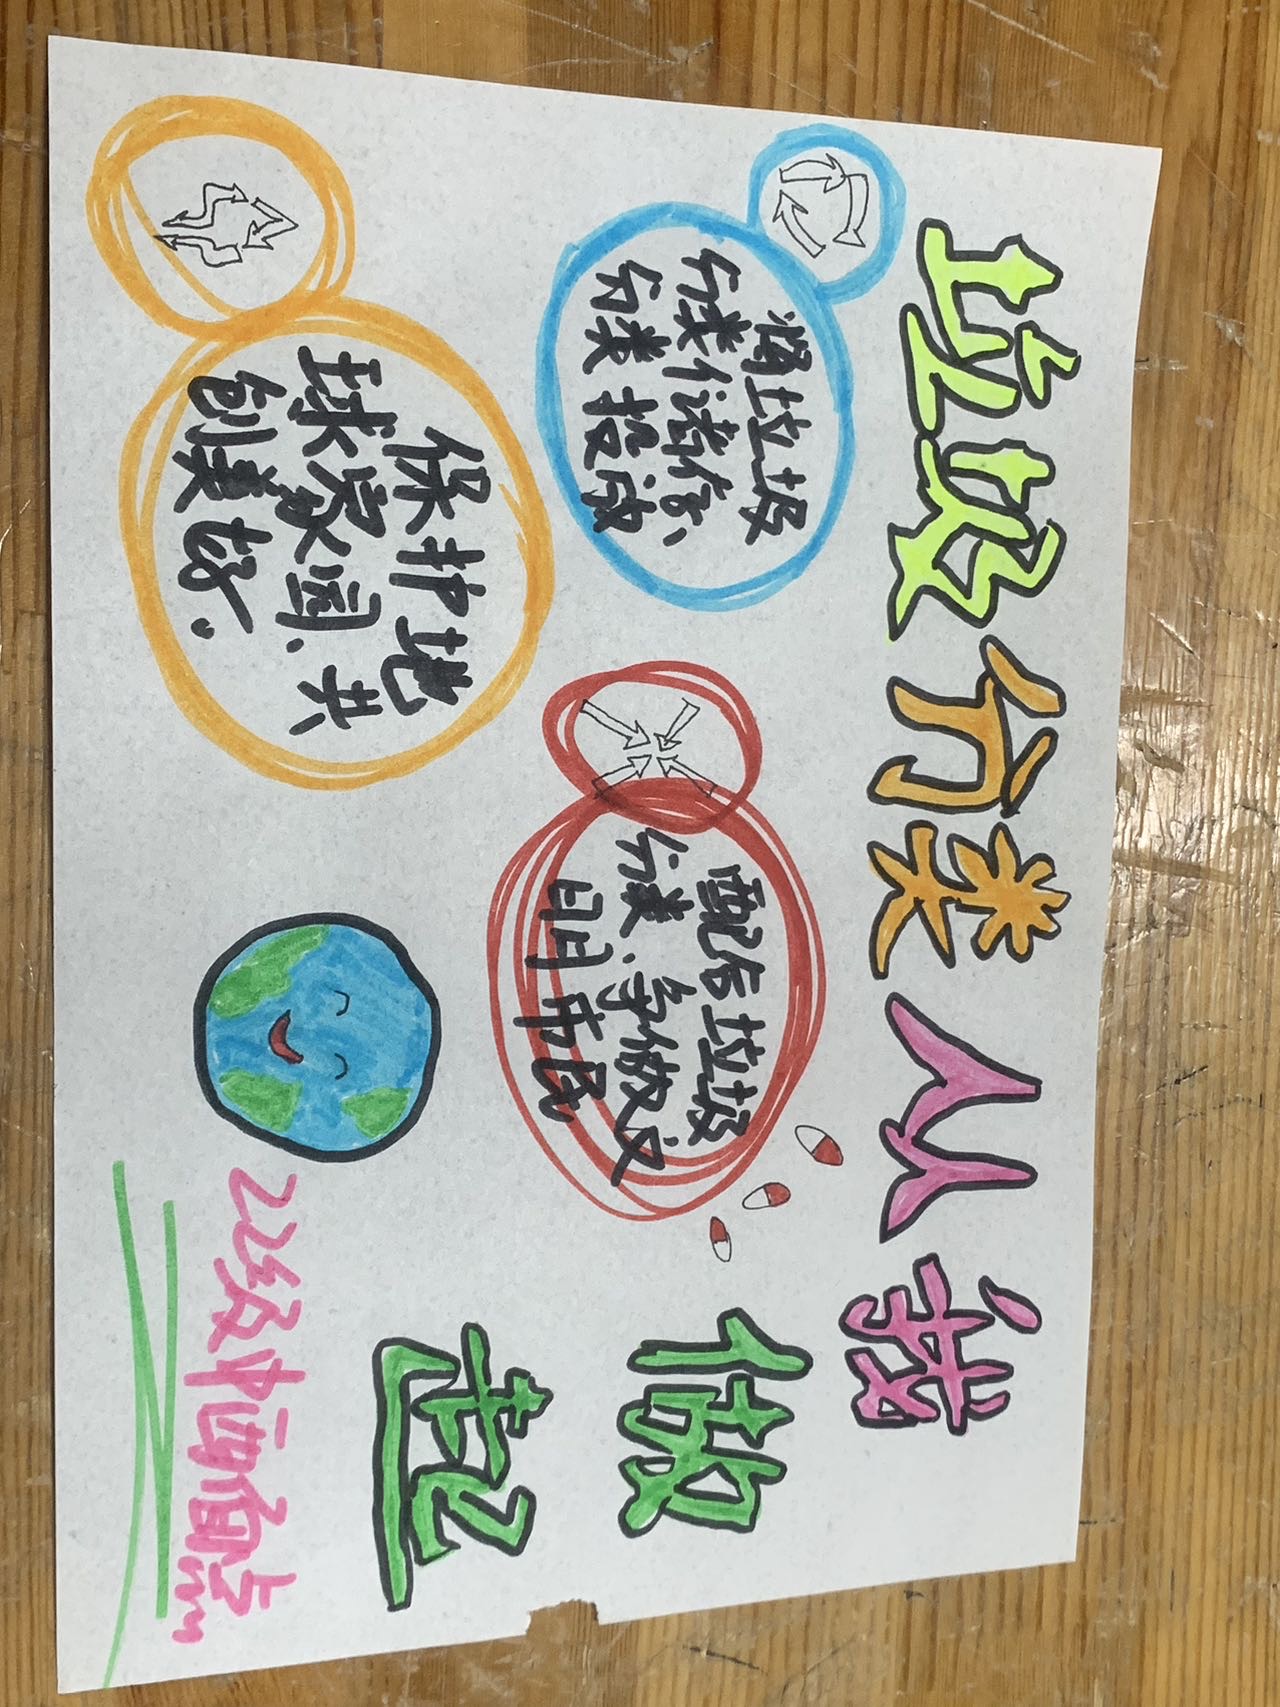 垃圾分类从我
做
起
将垃圾
分类储存、
分类投放
配合垃圾
分类、争做文
明市民
保护地
球家园、共
创美好.
22级中西面点